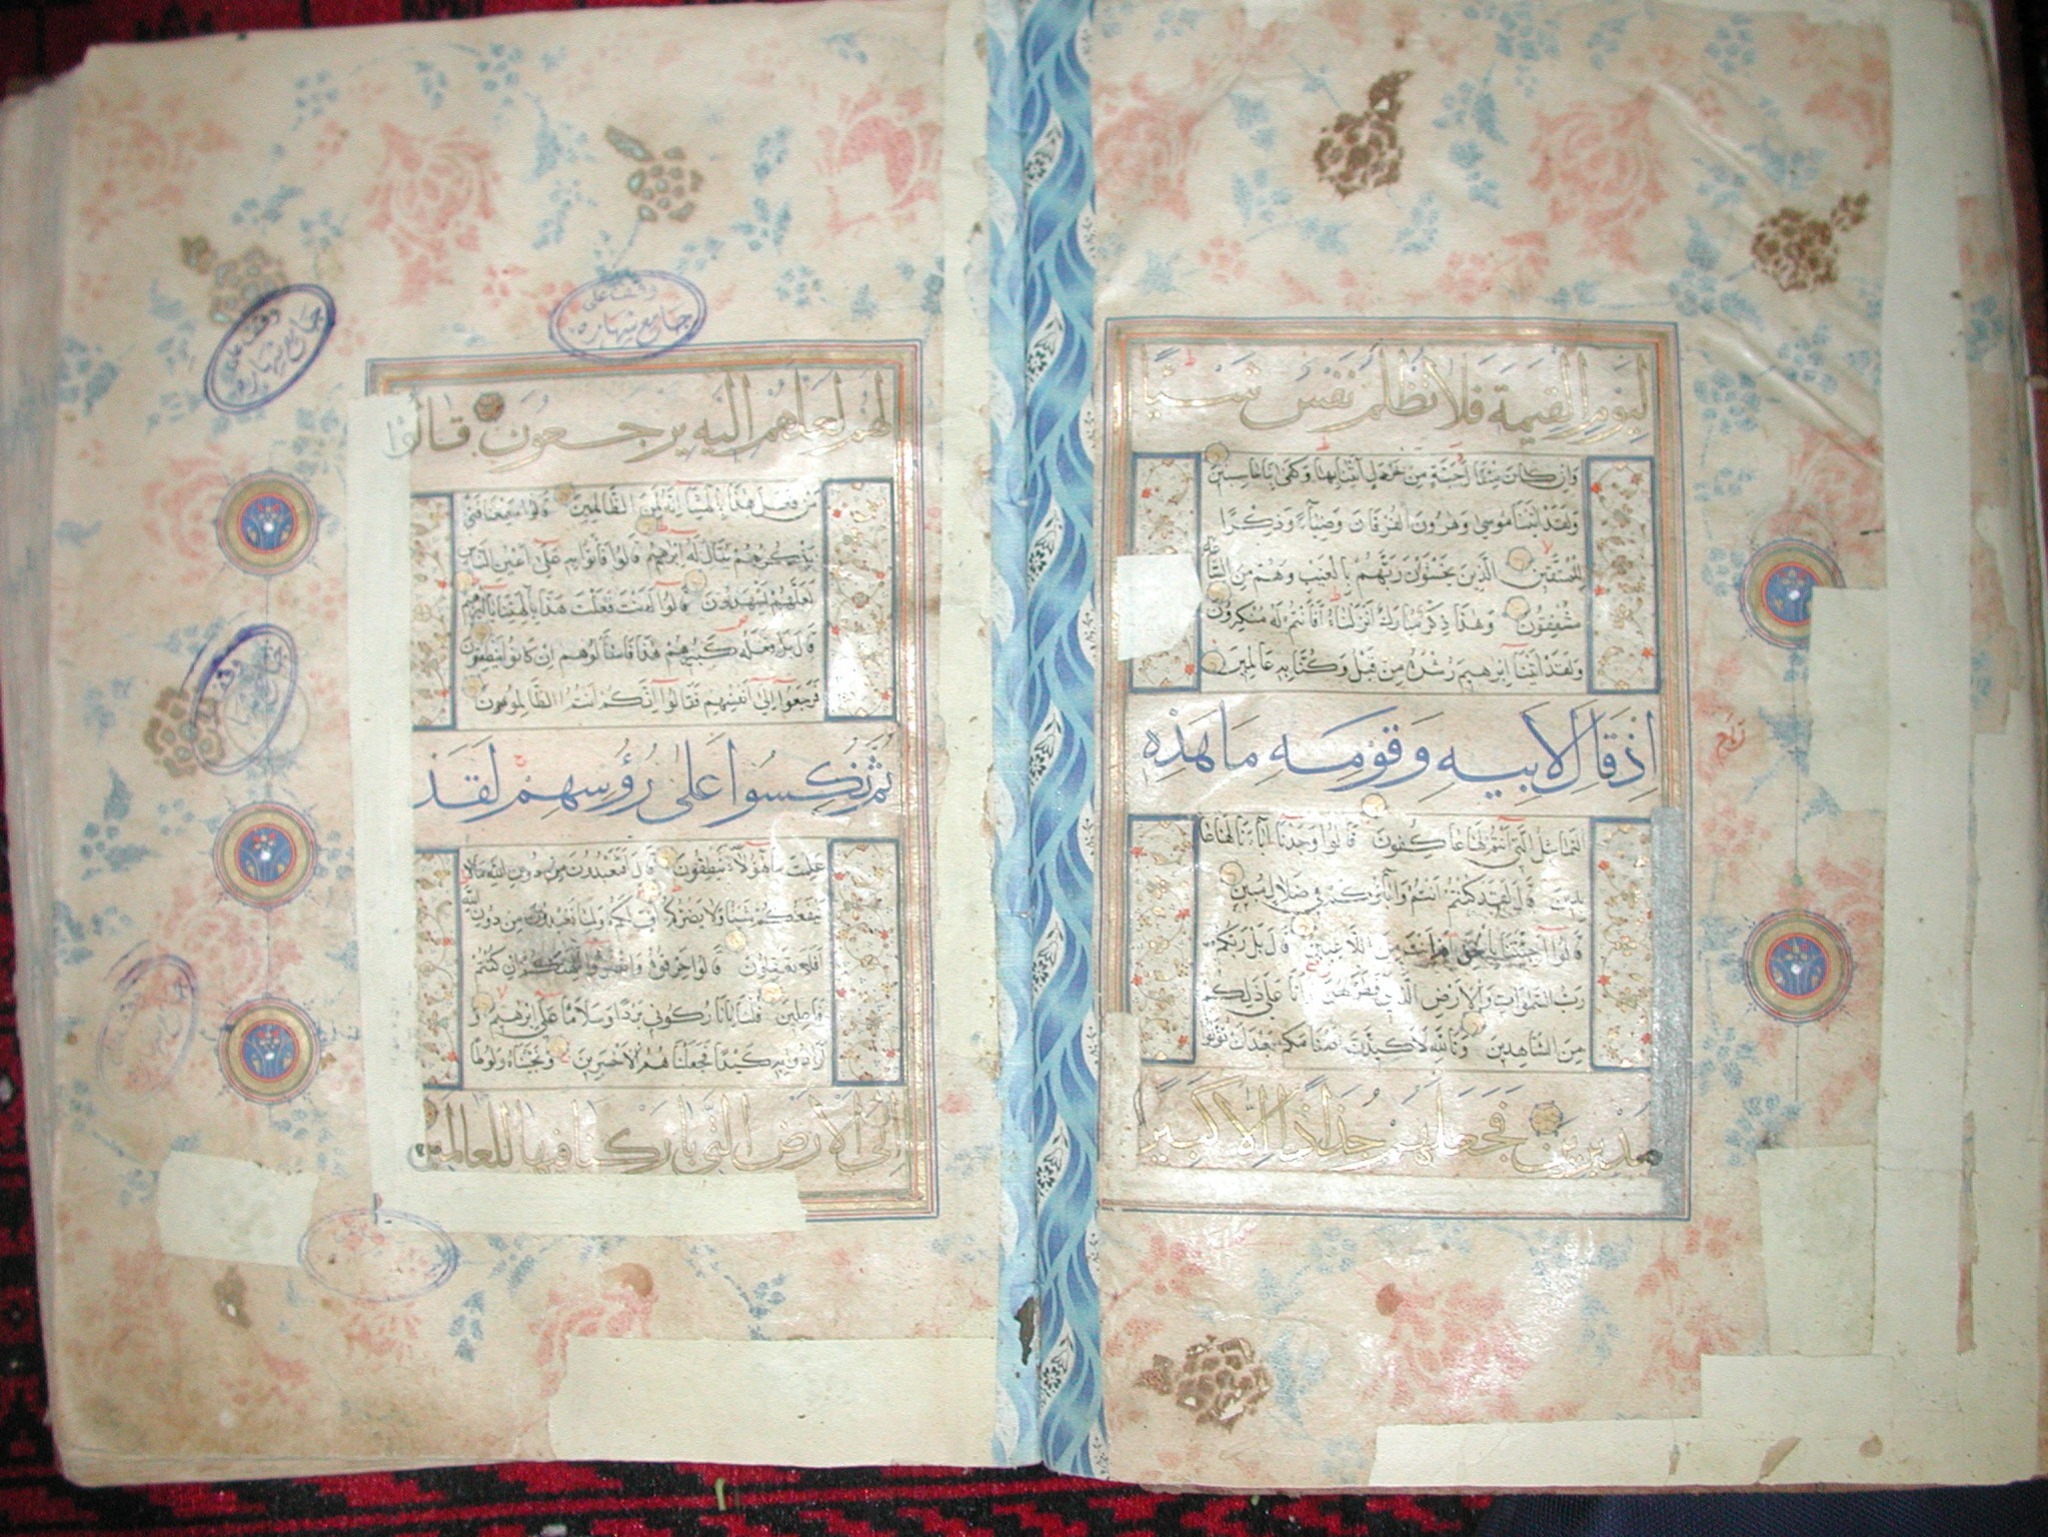 لِيَوْمِ الْقِيٰمَةِ فَلَا تُظْلَمُ نَفْسٌ شَيْئًا
وَاِنْ كَانَ مِثْقَالَ حَبَّةٍ مِنْ خَرْدَلٍ اَتَيْنَا بِهَا وَكَفٰى بِنَا حَاسِبِيْنَ
وَلَقَدْ اٰتَيْنَا مُوسٰى وَهٰرُونَ الْفُرْقَانَ وَضِيَآءً وَذِكْرًا
لِلْمُتَّقِيْنَ الَّذِيْنَ يَخْشَوْنَ رَبَّهُمْ بِالْغَيْبِ وَهُمْ مِنَ السَّاعَةِ
مُشْفِقُونَ وَهٰذَا ذِكْرٌ مُبَارَكٌ اَنْزَلْنَاهُ اَفَاَنْتُمْ لَهُ مُنْكِرُونَ
وَلَقَدْ اٰتَيْنَا اِبْرٰهِيمَ رُشْدَهُ مِنْ قَبْلُ وَكُنَّا بِهِ عَالِمِيْنَ
اِذْ قَالَ لِاَبِيهِ وَقَوْمِهِ مَا هٰذِهِ
التَّمَاثِيْلُ الَّتِي اَنْتُمْ لَهَا عَاكِفُونَ قَالُوا وَجَدْنَا اٰبَآءَنَا لَهَا عَا
بِدِيْنَ قَالَ لَقَدْ كُنْتُمْ اَنْتُمْ وَاٰبَآؤُكُمْ فِي ضَلَالٍ مُبِيْنٍ
قَالُوا اَجِئْتَنَا بِالْحَقِّ اَمْ اَنْتَ مِنَ اللَّاعِبِيْنَ قَالَ بَلْ رَبُّكُمْ
رَبُّ السَّمٰوَاتِ وَالْاَرْضِ الَّذِي فَطَرَهُنَّ وَاَنَا عَلٰى ذٰلِكُمْ
مِنَ الشَّاهِدِيْنَ وَتَاللّٰهِ لَاَكِيْدَنَّ اَصْنَامَكُمْ بَعْدَ اَنْ تُوَلُّوا
مُدْبِرِيْنَ فَجَعَلَهُمْ جُذَاذًا اِلَّا كَبِيْرًا
لَهُمْ لَعَلَّهُمْ اِلَيْهِ يَرْجِعُونَ قَالُوا
مَنْ فَعَلَ هٰذَا بِاٰلِهَتِنَا اِنَّهُ لَمِنَ الظَّالِمِيْنَ قَالُوا سَمِعْنَا فَتًى
يَذْكُرُهُمْ يُقَالُ لَهُ اِبْرٰهِيْمُ قَالُوا فَأْتُوا بِهِ عَلٰى اَعْيُنِ النَّاسِ
لَعَلَّهُمْ يَشْهَدُونَ قَالُوا ءَاَنْتَ فَعَلْتَ هٰذَا بِاٰلِهَتِنَا يَا اِبْرٰهِيْمُ
قَالَ بَلْ فَعَلَهُ كَبِيْرُهُمْ هٰذَا فَاسْاَلُوهُمْ اِنْ كَانُوا يَنْطِقُونَ
فَرَجَعُوا اِلٰى اَنْفُسِهِمْ فَقَالُوا اِنَّكُمْ اَنْتُمُ الظَّالِمُونَ
ثُمَّ نُكِسُوا عَلٰى رُؤُسِهِمْ لَقَدْ
عَلِمْتَ مَا هٰؤُلَآءِ يَنْطِقُونَ قَالَ اَفَتَعْبُدُونَ مِنْ دُونِ اللّٰهِ مَا لَا
يَنْفَعُكُمْ شَيْئًا وَلَا يَضُرُّكُمْ اُفٍّ لَكُمْ وَلِمَا تَعْبُدُونَ مِنْ دُونِ اللّٰهِ
اَفَلَا تَعْقِلُونَ قَالُوا حَرِّقُوهُ وَانْصُرُوا اٰلِهَتَكُمْ اِنْ كُنْتُمْ
فَاعِلِيْنَ قُلْنَا يَا نَارُ كُونِي بَرْدًا وَسَلَامًا عَلٰى اِبْرٰهِيْمَ وَ
اَرَادُوا بِهِ كَيْدًا فَجَعَلْنَاهُمُ الْاَخْسَرِيْنَ وَنَجَّيْنَاهُ وَلُوطًا
اِلَى الْاَرْضِ الَّتِي بَارَكْنَا فِيهَا لِلْعَالَمِيْنَ
وقف على
جامع شهاره
وقف على
جامع شهاره